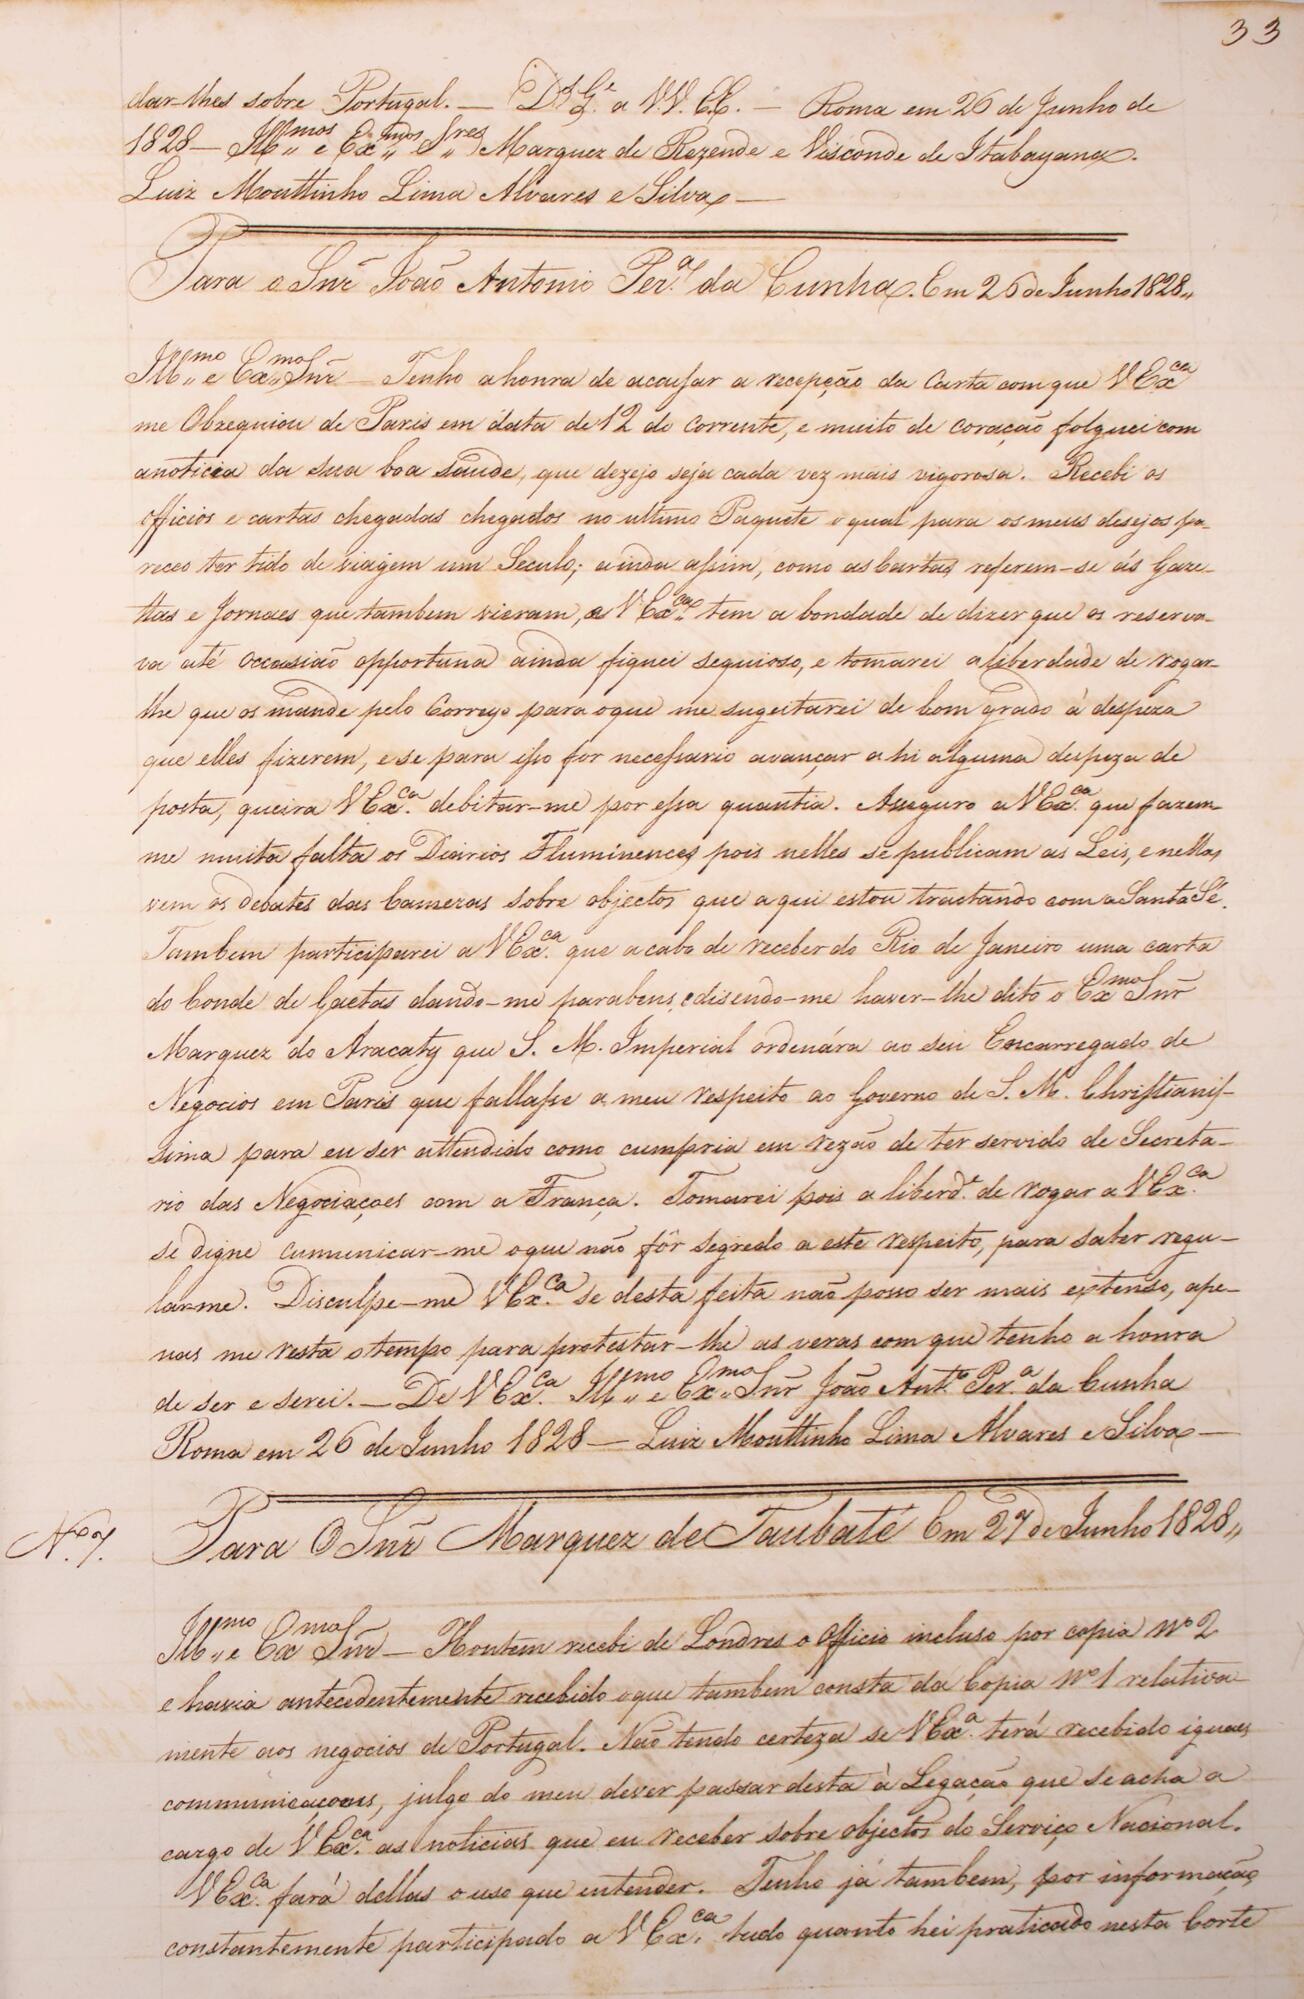 33
dar-lhes sobre Portugal. — Ds Ge a V.V. E.E. — Roma em 26 de Junho de
1828 — Illmos e Exmos Snres Marquez de Rezende e Visconde de Itabayana.
Luiz Mouttinho Lima Alvares e Silva —
Para o Snr João Antonio Perª da Cunha. Em 26 de Junho 1828,,
Illmo e Exmo Snr — Tenho a honra de accusar a recepção da Carta com que V Exca
me Obzequiou de Paris em data de 12 do corrente, e muito de coração folguei com
a noticia da sua boa saude, que dezejo seja cada vez mais vigorosa. Recebi os
officios e cartas chegadas chegados no ultimo Paquete o qual para os meus desejos pa-
receo ter tido de viagem um Seculo; ainda assim, como as Cartas referem-se ás Gaze-
tas e Jornaes que tambem vieram, e V Exca tem a bondade de dizer que os reserva-
va até occasião opportuna ainda fiquei sequioso, e tomarei a liberdade de rogar-
lhe que os mande pelo Correyo para o que me sugeitarei de bom grado á despeza
que elles fizerem, e se para isso for necessario avançar ahi alguma despeza de
posta, queira V Exca debitar-me por essa quantia. Asseguro a V Exca que fazem-
me muita falta os Diarios Fluminences pois nelles se publicam as Leis, e nelles
vem os debates das Cameras sobre objectos que aqui estou tractando com a Santa Sé.
Tambem participarei a V Exca que acabo de receber do Rio de Janeiro uma carta
do Conde de Gaetas dando-me parabens, e disendo-me haver-lhe dito o Exmo Snr
Marquez do Aracaty que S. M. Imperial ordenára ao seu Encarregado de
Negocios em Paris que fallasse a meu respeito ao Governo de S. M. Christianis-
sima para eu ser attendido como cumpria em rezão de ter servido de Secreta-
rio das Negociaçoes com a França. Tomarei pois a liberde de rogar a V Exca
se digne cumunicar-me o que não fôr segredo a este respeito, para saber regu-
lar-me. Disculpe-me V Exca se desta feita não posso ser mais extenso, ape-
nas me resta o tempo para protestar-lhe as veras com que tenho a honra
de ser e serei. — De V Exca Illmo e Exmo Snr João Anto Perª da Cunha
Roma em 26 de Junho 1828 — Luiz Mouttinho Lima Alvares e Silva —
No 7. Para O Snr Marquez de Taubaté Em 27 de Junho 1828,,
Illmo e Exmo Snr — Hontem recebi de Londres o Officio incluso por copia No 2
e havia antecedentemente recebido o que tambem consta da Copia No 1 relativa-
mente aos negocios de Portugal. Não tendo certeza se V Exa terá recebido iguaes
communicaçoens, julgo do meu dever passar desta á Legação que se acha a
cargo de V Exca as noticias que eu receber sobre objectos do Serviço Nacional.
V Exca fará dellas o uso que entender. Tenho já tambem, por informação
constantemente participado a V Exca tudo quanto hei praticado nesta Corte